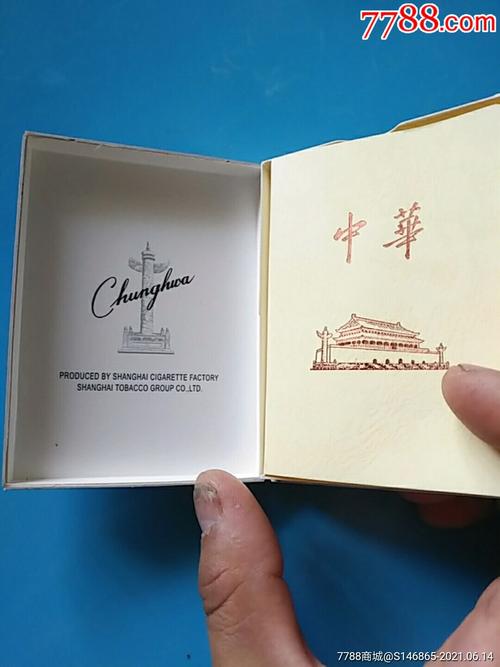 7788.com
中華
Chunghwa
PRODUCED BY SHANGHAI CIGARETTE FACTORY
SHANGHAI TOBACCO GROUP CO.,LTD.
7788商城@S146865-2021.06.14